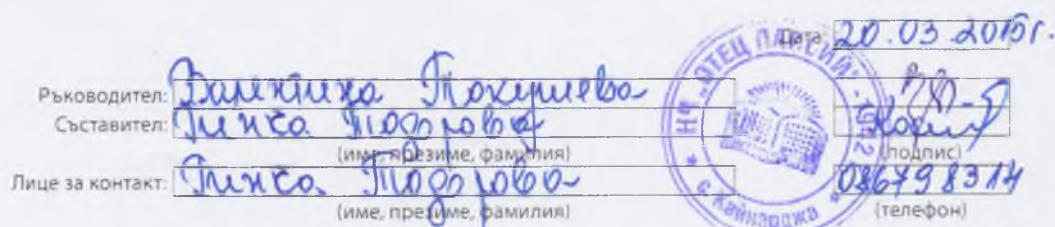 Дата: 20.03.2015г.
Ръководител: Валентина Токушева
Съставител: Пинка Тодорова
(име, презиме, фамилия) (подпис)
Лице за контакт: Пинка Тодорова 086798314
(име, презиме, фамилия) (телефон)
НЧ „ОТЕЦ ПАИСИЙ" - 1942
с. Кайнарджа